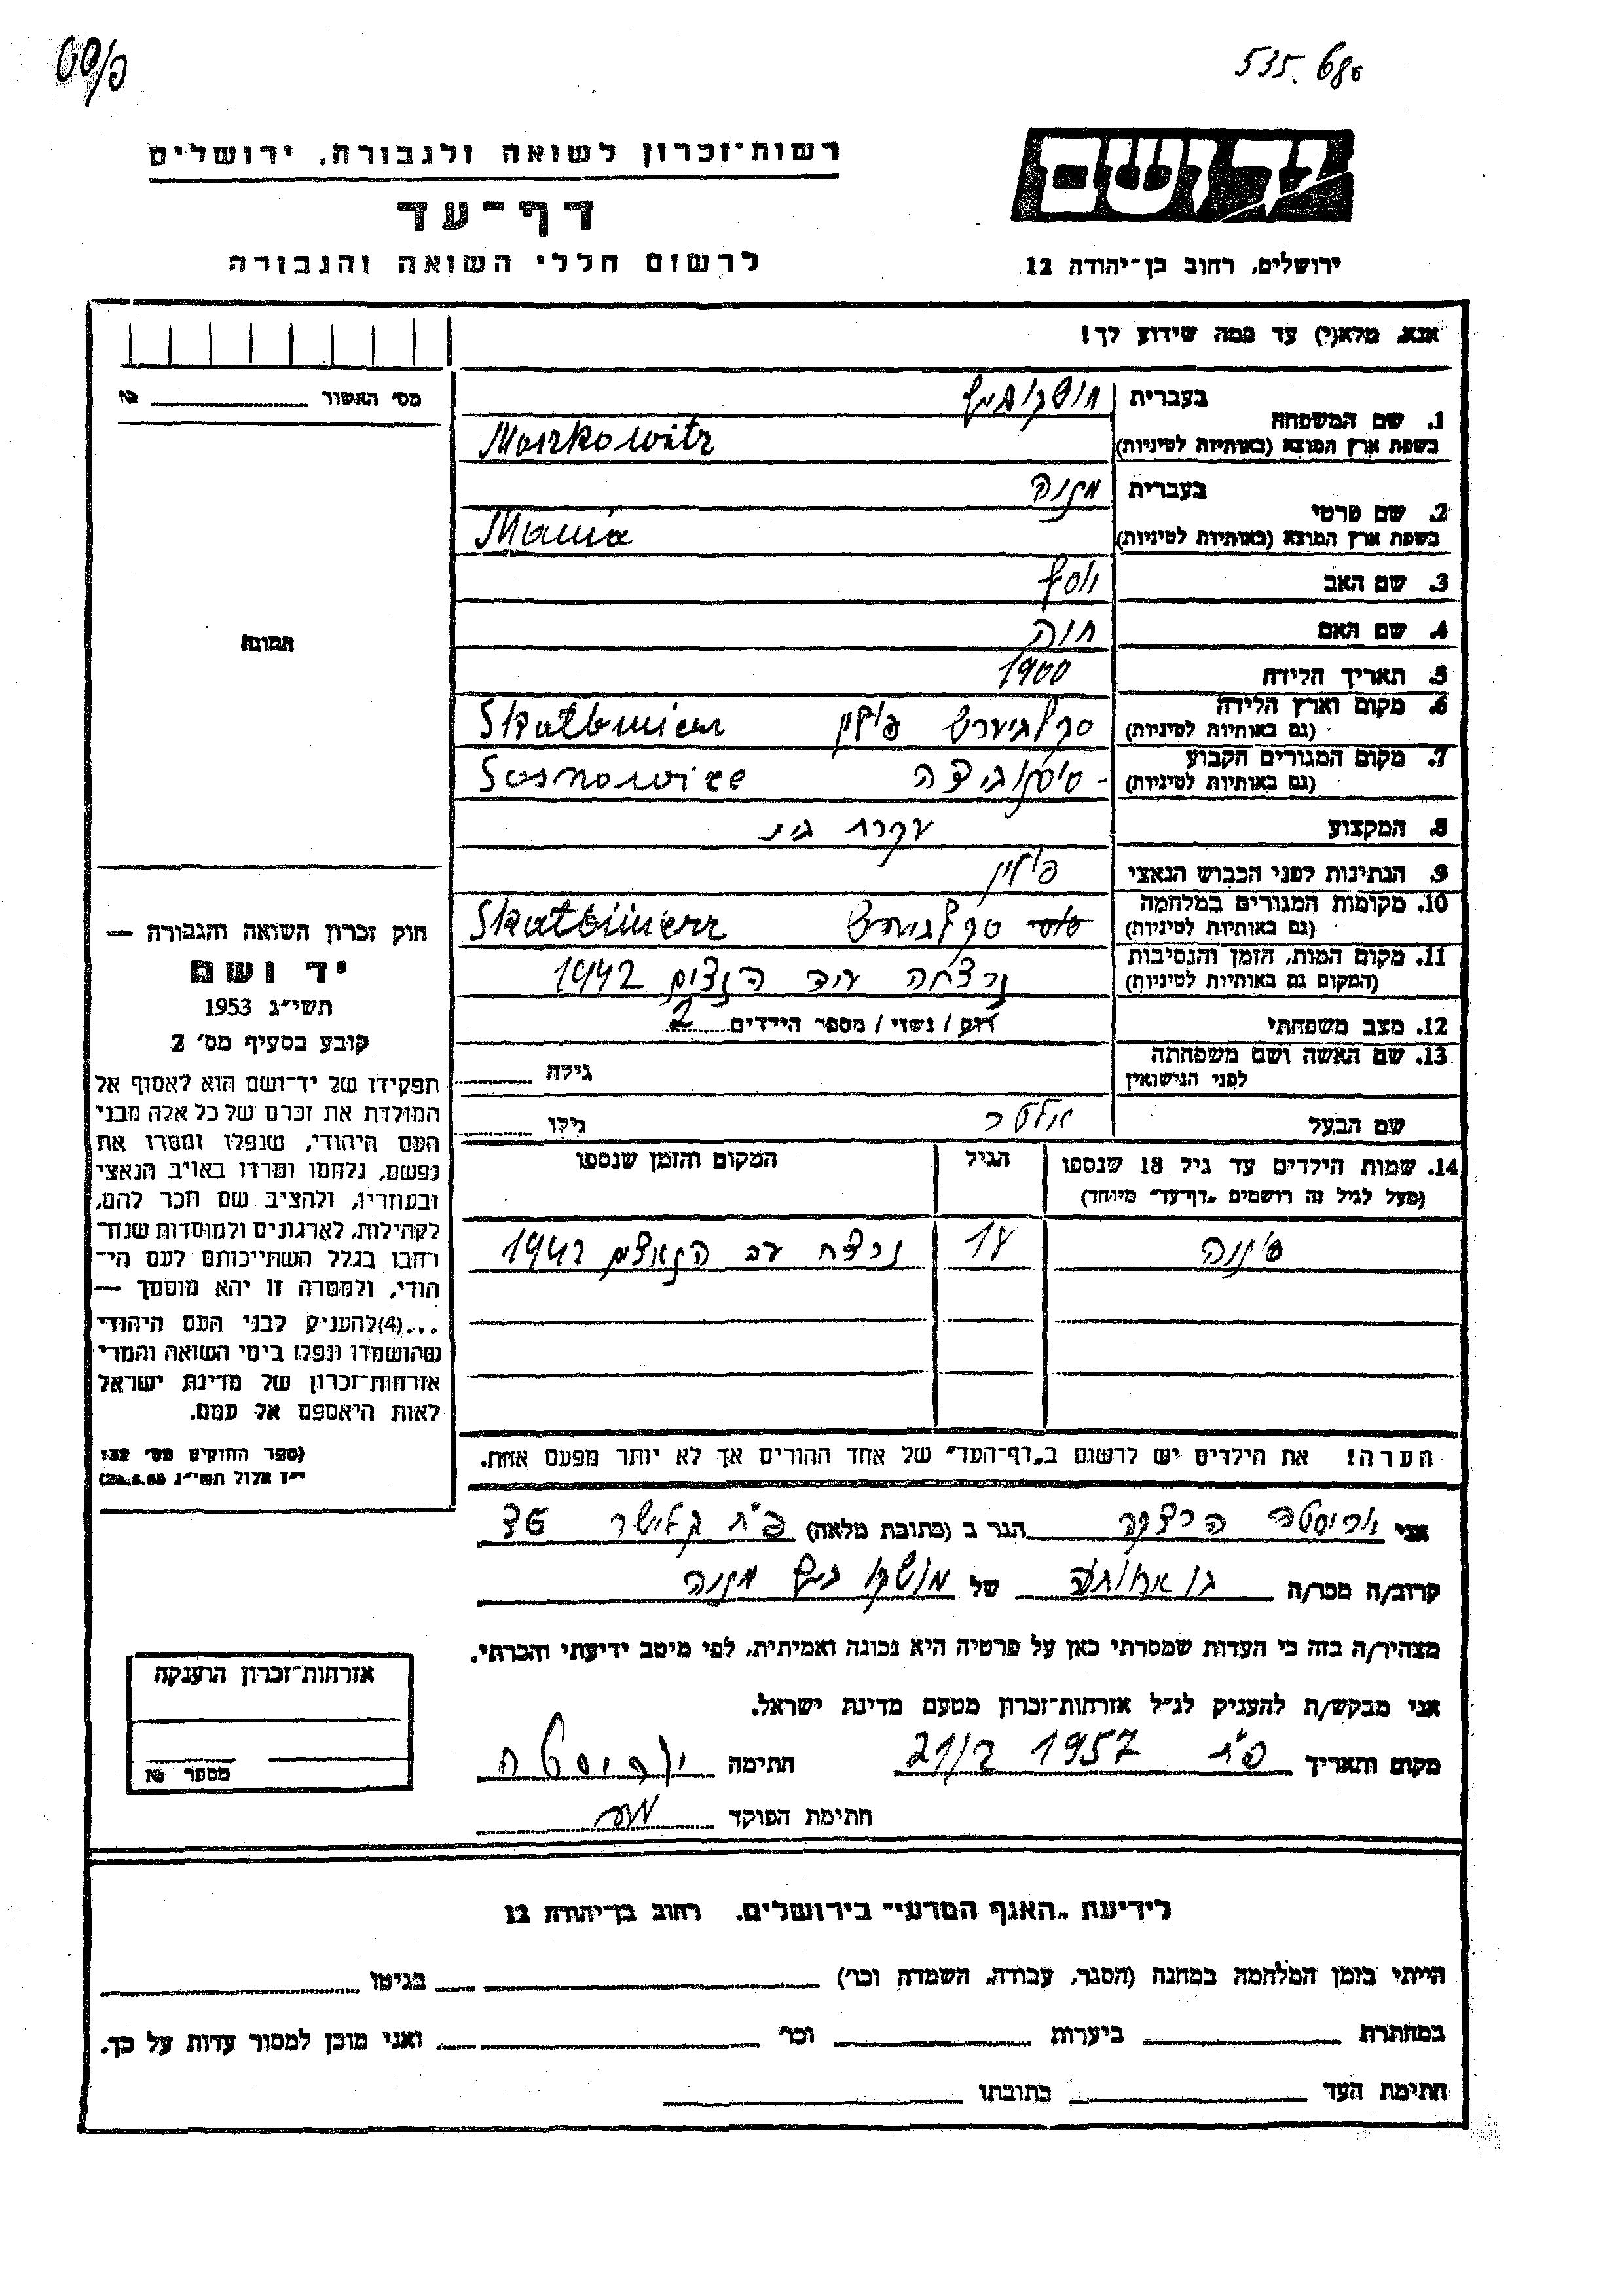 535.680
רשות־זכרון לשואה ולגבורה, ירושלים
יד ושם
דף־עד
לרשום חללי השואה והגבורה
ירושלים, רחוב בן־יהודה 12
אנא, מלא(י) עד כמה שידוע לך!
מס׳ האשור №
1. שם המשפחה בעברית מושקוביץ
בשפת ארץ המוצא (באותיות לטיניות) Moszkowitz
2. שם פרטי בעברית מניה
בשפת ארץ המוצא (באותיות לטיניות) Mania
3. שם האב יוסף
4. שם האם חוה
5. תאריך הלידה 1900
6. מקום וארץ הלידה (גם באותיות לטיניות) סקלבמירש פולין Skalbmierz
7. מקום המגורים הקבוע (גם באותיות לטיניות) סוסנוביצה Sosnowice
8. המקצוע עקרת בית
9. הנתינות לפני הכבוש הנאצי פולין
10. מקומות המגורים במלחמה (גם באותיות לטיניות) סקלבמירש Skalbmierz
11. מקום המות, הזמן והנסיבות (המקום גם באותיות לטיניות) נרצחה הנצים 1942
12. מצב משפחתי רווק / נשוי / מספר הילדים 2
13. שם האשה ושם משפחתה לפני הנישואין גילה
שם הבעל אלטר גילו
תמונה
14. שמות הילדים עד גיל 18 שנספו (מעל לגיל זה רושמים „דף־עד״ מיוחד) הגיל המקום והזמן שנספו
17 נרצח הנאצים 1942
הערה! את הילדים יש לרשום ב„דף־העד״ של אחד ההורים אך לא יותר מפעם אחת.
חוק זכרון השואה והגבורה —
יד ושם
תשי״ג 1953
קובע בסעיף מס׳ 2
תפקידו של יד־ושם הוא לאסוף אל
המולדת את זכרם של כל אלה מבני
העם היהודי, שנפלו ומסרו את
נפשם, נלחמו ומרדו באויב הנאצי
ובעוזריו, ולהציב שם וזכר להם,
לקהילות, לארגונים ולמוסדות שנח־
רבו בגלל השתייכותם לעם הי־
הודי, ולמטרה זו יהא מוסמך —
...(4) להעניק לבני העם היהודי
שהושמדו ונפלו בימי השואה והמרי
אזרחות־זכרון של מדינת ישראל
לאות היאספם אל עמם.
(ספר החוקים מס׳ 132
י״ז אלול תשי״ג 28.8.53)
אני הגר ב (כתובת מלאה) פ״ת
קרוב/ה מכר/ה של מושקוביץ מניה
מצהיר/ה בזה כי העדות שמסרתי כאן על פרטיה היא נכונה ואמיתית, לפי מיטב ידיעתי והכרתי.
אני מבקש/ת להעניק לנ״ל אזרחות־זכרון מטעם מדינת ישראל.
מקום ותאריך פ״ת 1957 חתימה
חתימת הפוקד
אזרחות־זכרון הוענקה
מספר №
לידיעת „האגף המדעי״ בירושלים, רחוב בן־יהודה 12
הייתי בזמן המלחמה במחנה (הסגר, עבודה, השמדה וכו׳) בגיטו
במחתרת ביערות וכו׳ ואני מוכן למסור עדות על כך.
חתימת העד כתובתו